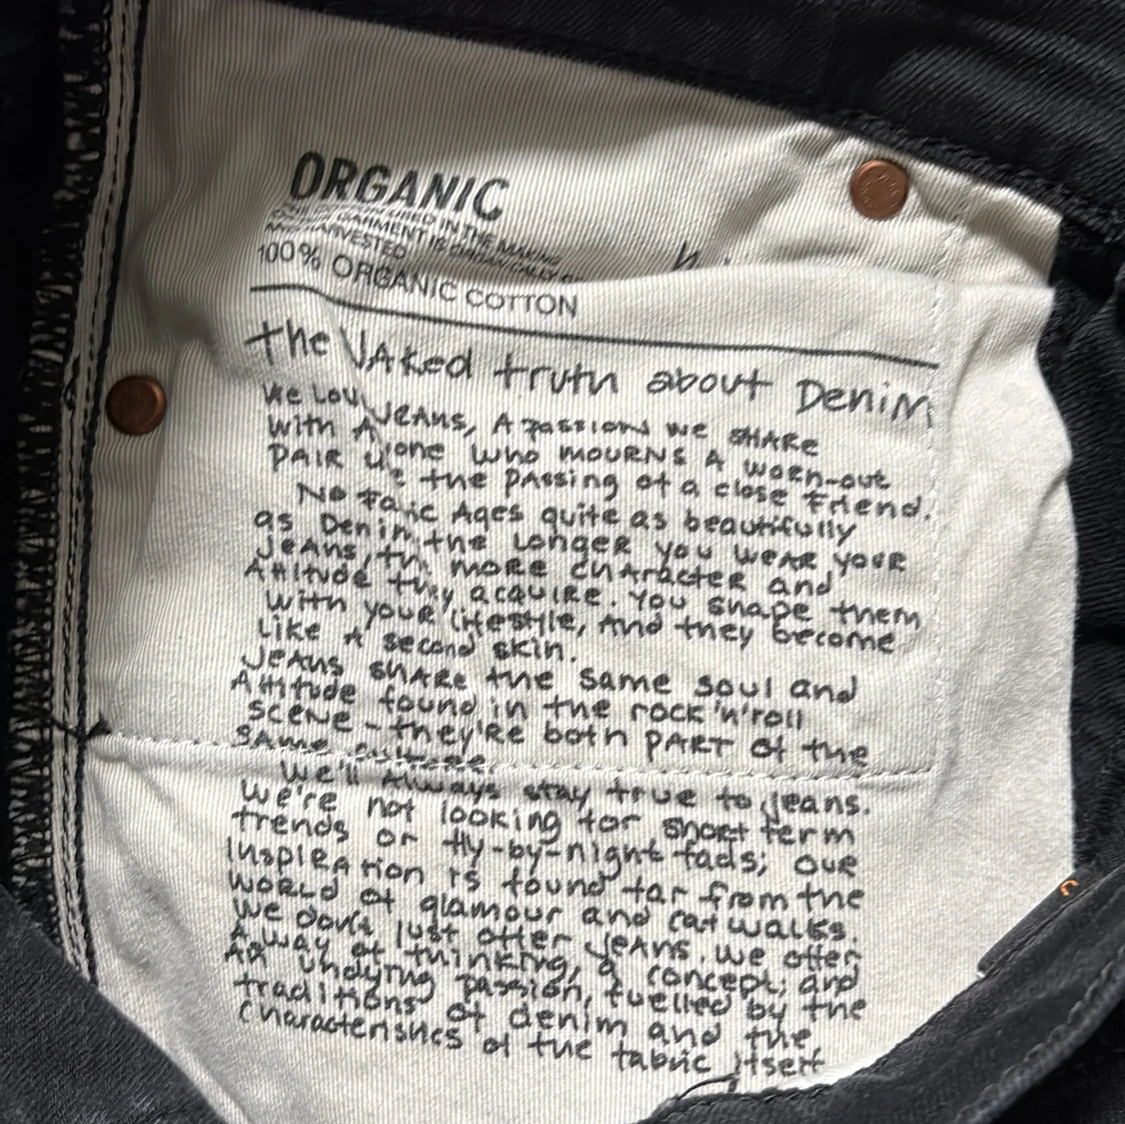 ORGANIC
USED IN THE MAKING
GARMENT IS ORGANICALLY
HARVESTED
100% ORGANIC COTTON
the NAked truth about DeniM
We Lov JEANS, A passion we SHARe
With A one who MOURNS A worn-out
PAIR the PAssing of a close friend.
No Ages quite as beautifully
as Denim, the LonGeR you WEAR YOUR
JeAns, MORE CHARacteR and
Attitude they acquire. You shape them
With your lifestyle, And they become
Like A second skin.
JeAns SHARe the same soul and
Attitude found in the rock'n'roll
SCENE - they'Re both PART of the
SAMe culture.
We'll Always stay true to jeans.
We're not looking for short term
trends or fly-by-night fads; OUR
InspiRAtion is found far from the
WORLD of glamour and catwalks.
We don't just offer JeAns. We offer
A way of thinking, a concept; and
An undying passion, fuelled by the
traditions of denim and the
Characteristics of the fabric itself